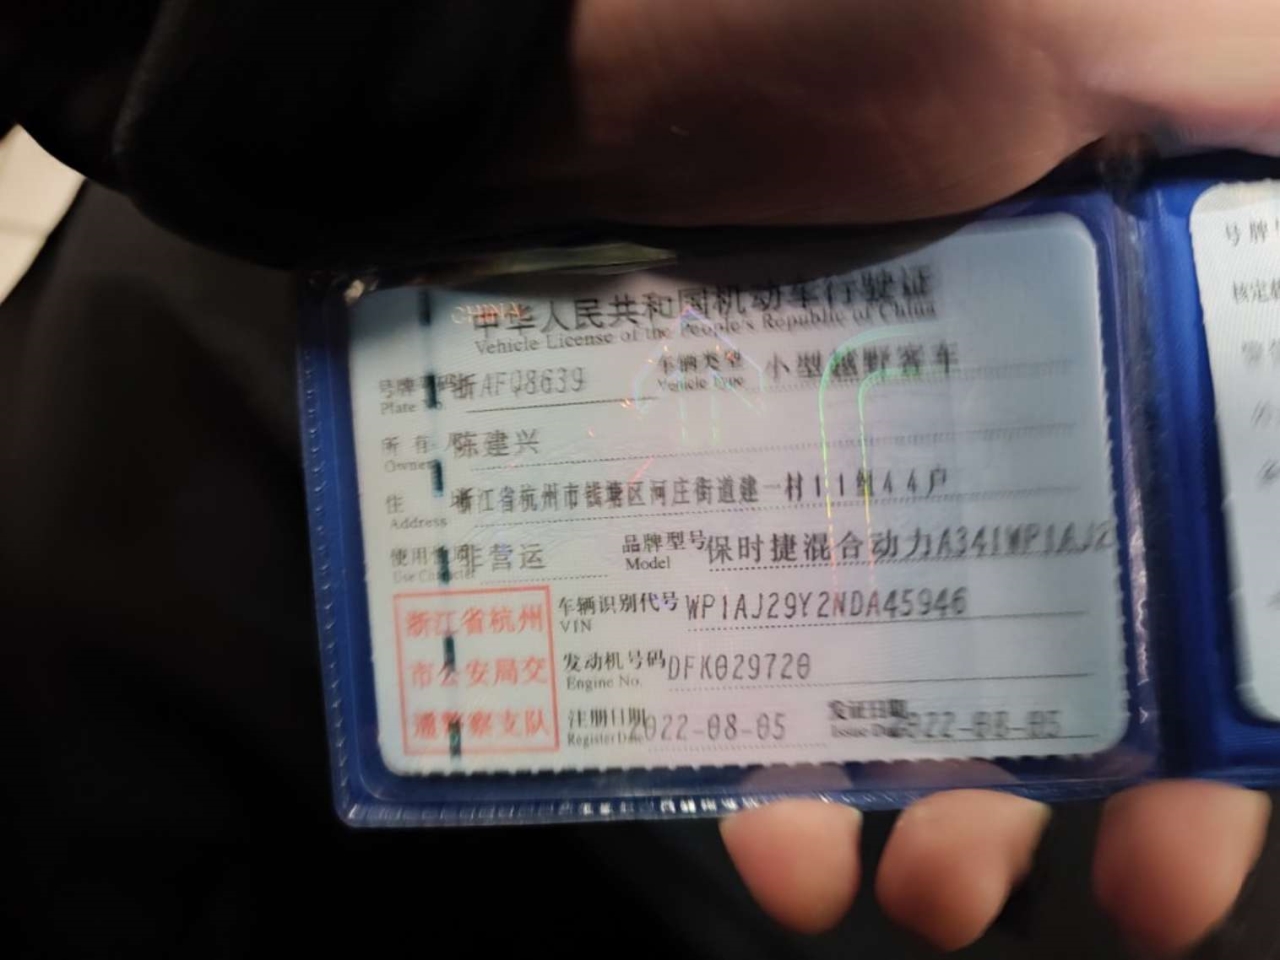 CHINA
中华人民共和国机动车行驶证
Vehicle License of the People's Republic of China
号牌号码 浙AFQ8639 车辆类型 小型越野客车
Plate No. Vehicle Type
所有 陈建兴
Owner
住 浙江省杭州市钱塘区河庄街道建一村11组44户
Address
使用性质 非营运 品牌型号 保时捷混合动力A341WP1AJ2
Use Character Model
浙江省杭州
市公安局交
通警察支队
车辆识别代号 WP1AJ29Y2NDA45946
VIN
发动机号码 DFK029720
Engine No.
注册日期 022-08-05 发证日期 022-08-05
Register Date Issue Date
号牌
核定